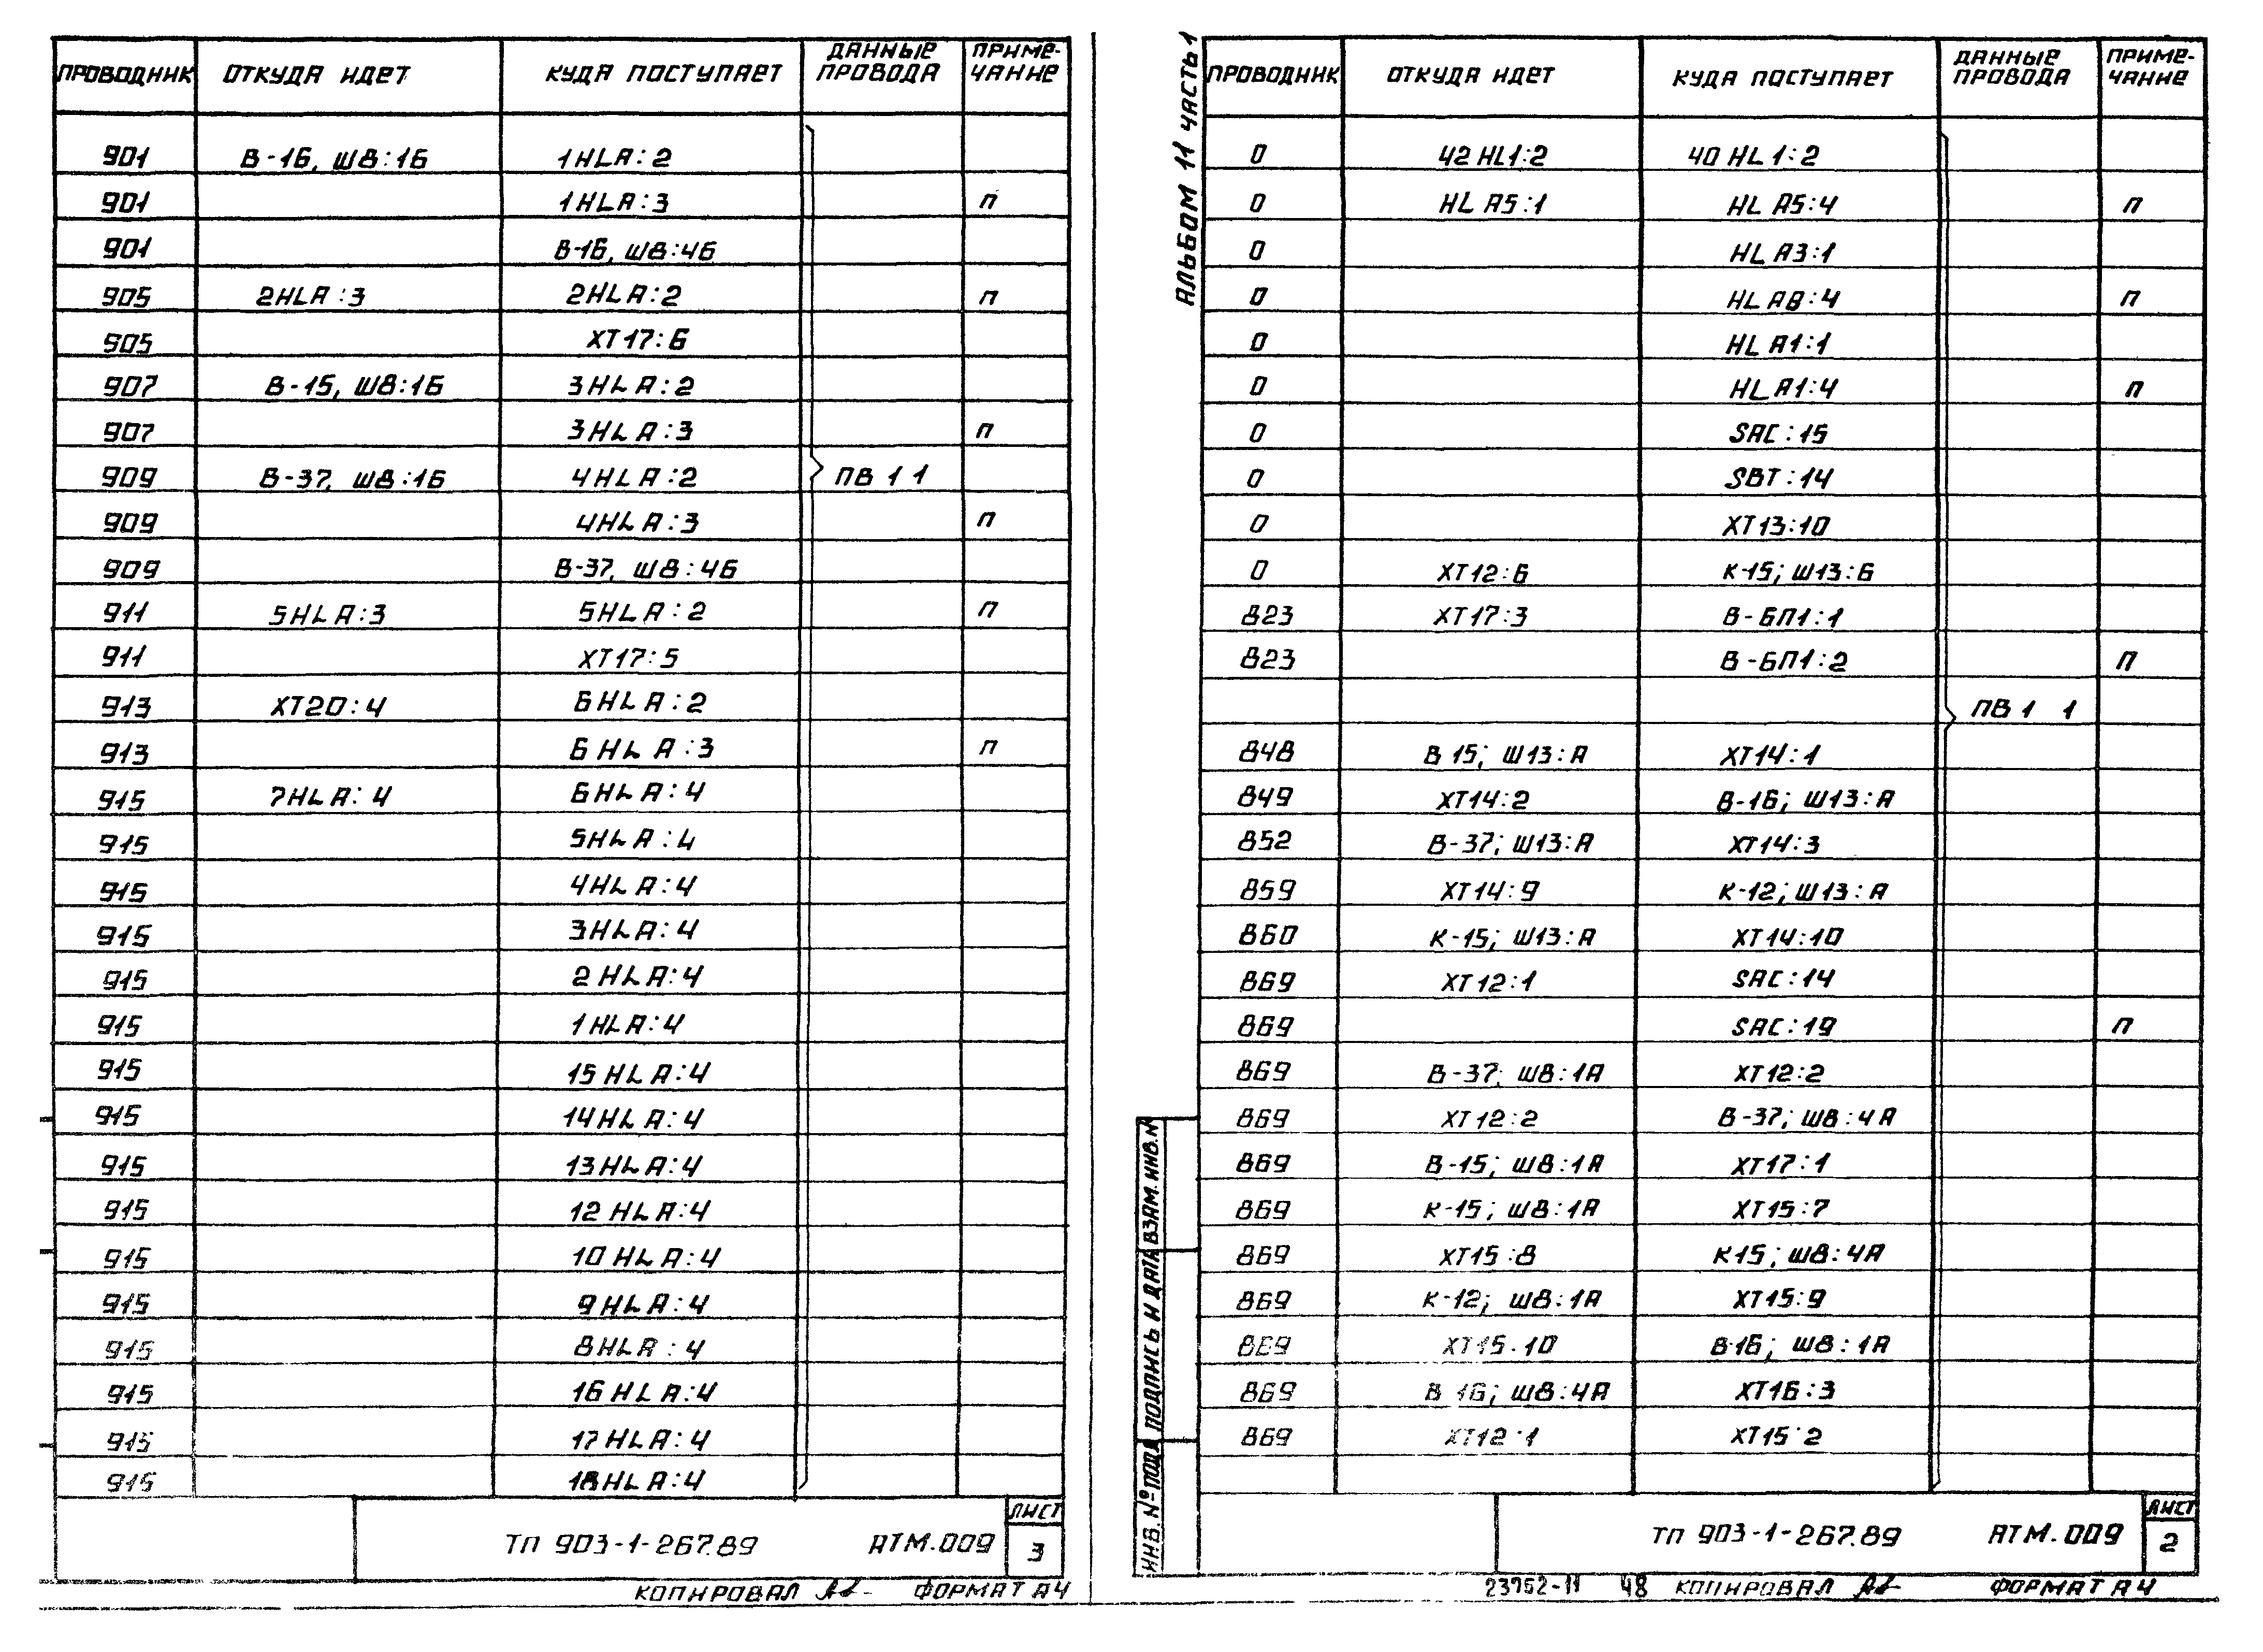 ПРОВОДНИК ОТКУДА ИДЕТ КУДА ПОСТУПАЕТ ДАННЫЕ ПРОВОДА ПРИМЕ-ЧАНИЕ
901 В-16, Ш8:1Б 1HLA:2
901 1HLA:3 П
901 В-16, Ш8:4Б
905 2HLA:3 2HLA:2 П
905 XT17:6
907 В-15, Ш8:1Б 3HLA:2
907 3HLA:3 П
909 В-37, Ш8:1Б 4HLA:2 ПВ 1 1
909 4HLA:3 П
909 В-37, Ш8:4Б
911 5HLA:3 5HLA:2 П
911 XT17:5
913 XT20:4 6HLA:2
913 6HLA:3 П
915 7HLA:4 6HLA:4
915 5HLA:4
915 4HLA:4
915 3HLA:4
915 2HLA:4
915 1HLA:4
915 15HLA:4
915 14HLA:4
915 13HLA:4
915 12HLA:4
915 10HLA:4
915 9HLA:4
915 8HLA:4
915 16HLA:4
915 17HLA:4
915 18HLA:4
ТП 903-1-267.89 АТМ.009 ЛИСТ 3
КОПИРОВАЛ ФОРМАТ А4
АЛЬБОМ 11 ЧАСТЬ 1
ПРОВОДНИК ОТКУДА ИДЕТ КУДА ПОСТУПАЕТ ДАННЫЕ ПРОВОДА ПРИМЕ-ЧАНИЕ
0 42HL1:2 40HL1:2
0 HLA5:1 HLA5:4 П
0 HLA3:1
0 HLA8:4 П
0 HLA1:1
0 HLA1:4 П
0 SAC:15
0 SBT:14
0 XT13:10
0 XT12:6 К-15; Ш13:Б
823 XT17:3 В-БП1:1
823 В-БП1:2 П
ПВ 1 1
848 В 15; Ш13:А XT14:1
849 XT14:2 В-16; Ш13:А
852 В-37; Ш13:А XT14:3
859 XT14:9 К-12; Ш13:А
860 К-15; Ш13:А XT14:10
869 XT12:1 SAC:14
869 SAC:19 П
869 В-37; Ш8:1А XT12:2
869 XT12:2 В-37; Ш8:4А
869 В-15; Ш8:1А XT17:1
869 К-15; Ш8:1А XT15:7
869 XT15:8 К15; Ш8:4А
869 К-12; Ш8:1А XT15:9
869 XT15.10 В-16; Ш8:1А
869 В 16; Ш8:4А XT16:3
869 XT12:1 XT15:2
ИНВ. № ПОДЛ ПОДПИСЬ И ДАТА ВЗАМ. ИНВ. №
ТП 903-1-267.89 АТМ.009 ЛИСТ 2
23952-11 48 КОПИРОВАЛ ФОРМАТ А4